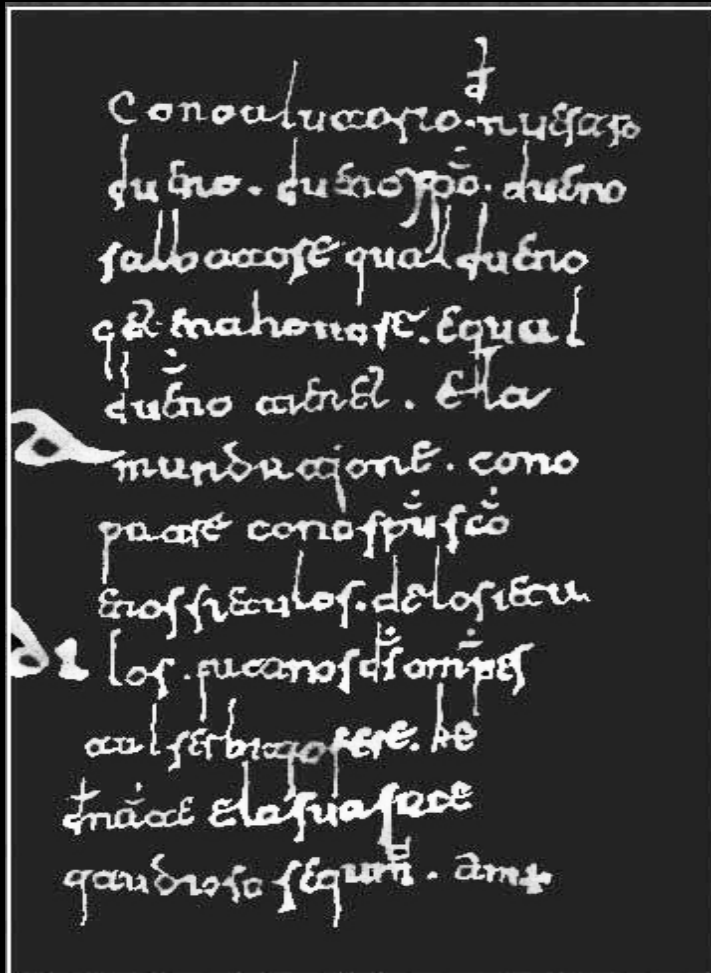 Cono aiutorio. nuestro
dueno. dueno xpo. dueno
salbatore qual dueno
get ena honore. equal
duenno tienet. ela
mandatjone. cono
patre cono spu sco
enos sieculos. delosiecu
los. facanos ds omps
tal serbitjo fere. ke
denate ela sua face
gaudioso segam. am